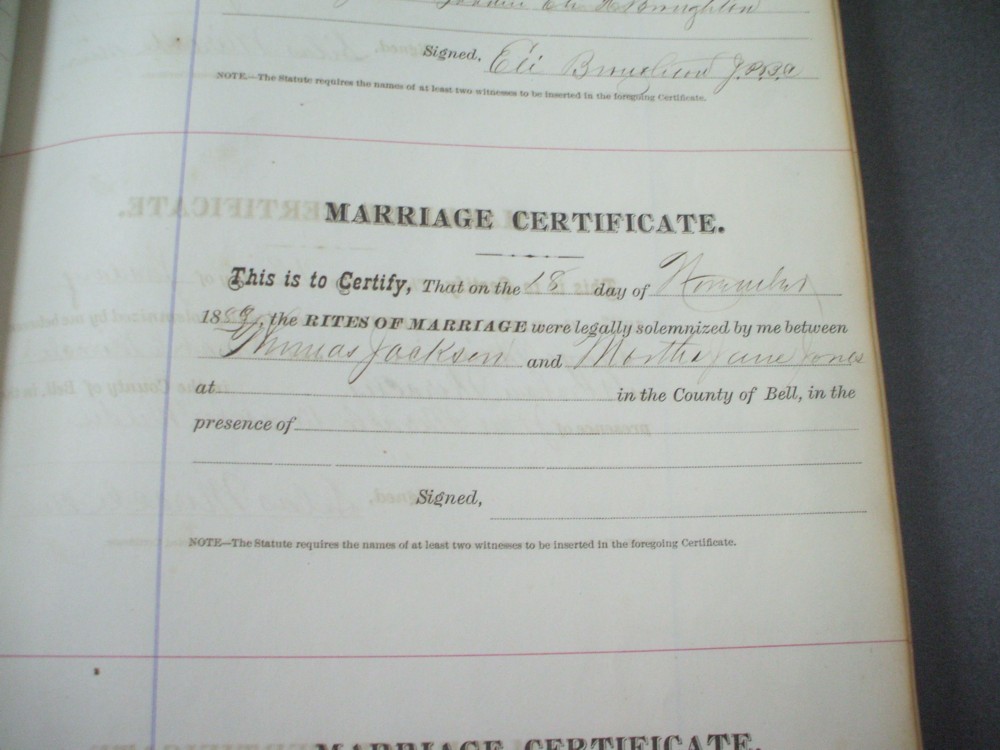 Eli H Broughton
Signed, Eli Broughton J.P.B.C
NOTE.—The Statute requires the names of at least two witnesses to be inserted in the foregoing Certificate.
MARRIAGE CERTIFICATE.
This is to Certify, That on the 18 day of November
1889, the RITES OF MARRIAGE were legally solemnized by me between
Thomas Jackson and Martha Jane Jones
at in the County of Bell, in the
presence of
Signed,
NOTE—The Statute requires the names of at least two witnesses to be inserted in the foregoing Certificate.
MARRIAGE CERTIFICATE.